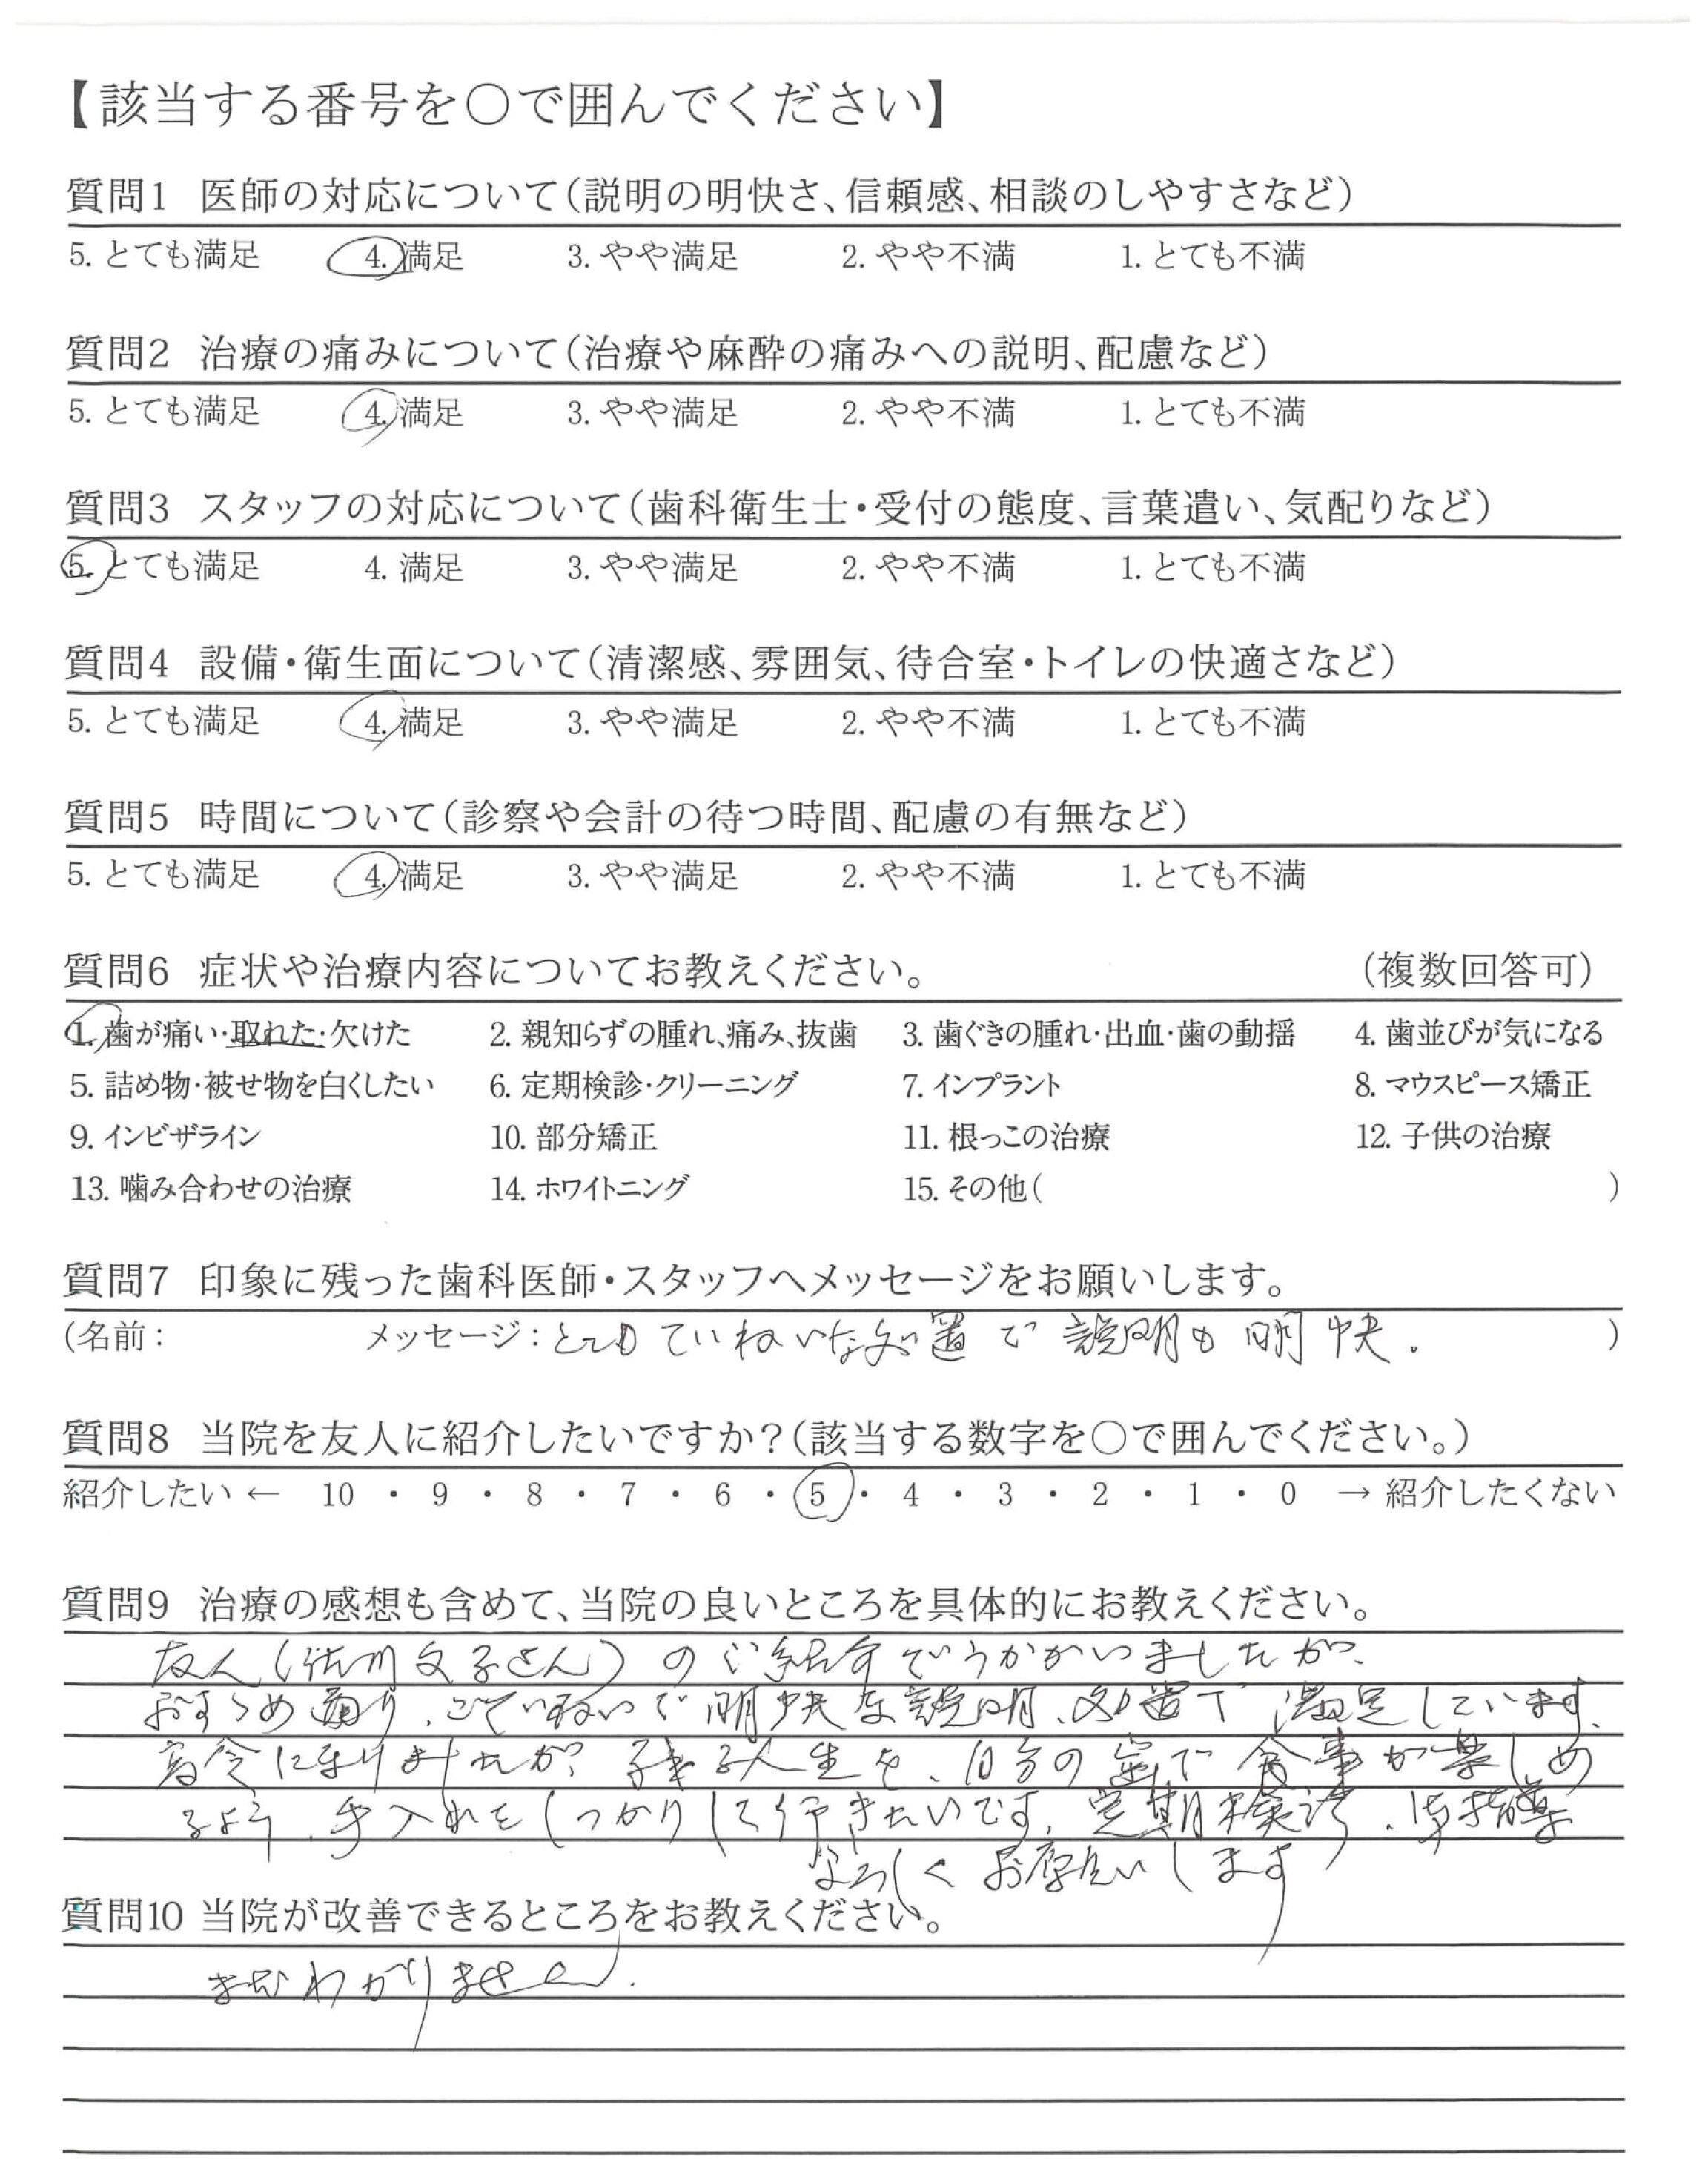 【該当する番号を〇で囲んでください】
質問1 医師の対応について(説明の明快さ、信頼感、相談のしやすさなど)
5. とても満足 4. 満足 3. やや満足 2. やや不満 1. とても不満
質問2 治療の痛みについて(治療や麻酔の痛みへの説明、配慮など)
5. とても満足 4. 満足 3. やや満足 2. やや不満 1. とても不満
質問3 スタッフの対応について(歯科衛生士・受付の態度、言葉遣い、気配りなど)
5. とても満足 4. 満足 3. やや満足 2. やや不満 1. とても不満
質問4 設備・衛生面について(清潔感、雰囲気、待合室・トイレの快適さなど)
5. とても満足 4. 満足 3. やや満足 2. やや不満 1. とても不満
質問5 時間について(診察や会計の待つ時間、配慮の有無など)
5. とても満足 4. 満足 3. やや満足 2. やや不満 1. とても不満
質問6 症状や治療内容についてお教えください。 (複数回答可)
1. 歯が痛い・取れた・欠けた 2. 親知らずの腫れ、痛み、抜歯 3. 歯ぐきの腫れ・出血・歯の動揺 4. 歯並びが気になる
5. 詰め物・被せ物を白くしたい 6. 定期検診・クリーニング 7. インプラント 8. マウスピース矯正
9. インビザライン 10. 部分矯正 11. 根っこの治療 12. 子供の治療
13. 噛み合わせの治療 14. ホワイトニング 15. その他( )
質問7 印象に残った歯科医師・スタッフへメッセージをお願いします。
(名前: メッセージ:とてもていねいな処置で説明も明快。 )
質問8 当院を友人に紹介したいですか?(該当する数字を〇で囲んでください。)
紹介したい ← 10 ・ 9 ・ 8 ・ 7 ・ 6 ・ 5 ・ 4 ・ 3 ・ 2 ・ 1 ・ 0 → 紹介したくない
質問9 治療の感想も含めて、当院の良いところを具体的にお教えください。
友人(文子さん)のご紹介でうかがいましたが、
おすすめ通り、ごていねいで明快な説明、処置で満足しています、
高令になりましたが、残る人生を、自分の歯で食事が楽しめ
るよう、手入れをしっかりして行きたいです、定期検診、御指導
よろしくお願いします
質問10 当院が改善できるところをお教えください。
まだわかりません.